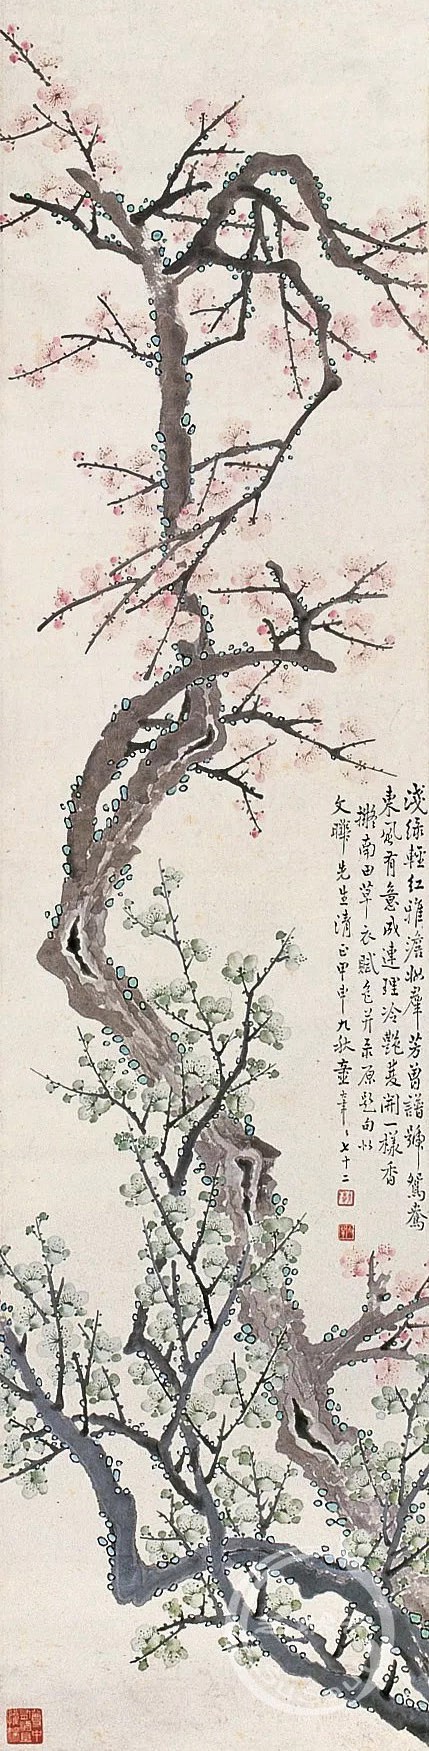 淺綠輕紅雅澹妝羣芳曾譜號鴛鴦
東風有意成連理冷艷開一樣香
擬南田草衣賦色并录原題句以
文聯先生清正甲申九秋七十二